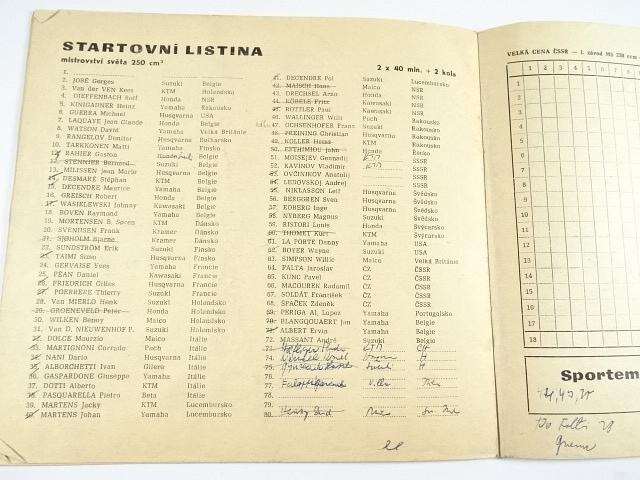 STARTOVNÍ LISTINA
mistrovství světa 250 cm³
2 x 40 min. + 2 kola
1.
2. JOBÉ Georges Suzuki Belgie
3. Van der VEN Kees KTM Holandsko
4. DIEFFENBACH Rolf Honda NSR
5. KINIGADNER Heinz Yamaha Rakousko
6. GUERRA Michael Husqvarna USA
7. LAQUAYE Jean Claude Honda Belgie
8. WATSON David Yamaha Velká Británie
9. RANGELOV Dimitar Husqvarna Bulharsko
10. TARKKONEN Matti Yamaha Finsko
11. RAHIER Gaston Belgie
12. STENNIER Bernard Belgie
13. MILISSEN Jean Marie Husqvarna Belgie
14. DESMARÉ Stéphan KTM Belgie
15. DECENDRE Maurice Yamaha Belgie
16. GREISCH Robert Honda Belgie
17. WASIELEWSKI Johnny Kawasaki Belgie
18. BOVEN Raymond Yamaha Belgie
19. MORTENSEN B. Søren KTM Dánsko
20. SVENDSEN Frank Kramer Dánsko
21. SJØHOLM Bjarne Kramer Dánsko
22. SUNDSTRÖM Erik Suzuki Finsko
23. TAIMI Simo Husqvarna Finsko
24. GERVAISE Yves Yamaha Francie
25. PÉAN Daniel Kawasaki Francie
26. FRIEDRICH Gilles Husqvarna Francie
27. POERRERE Thierry Suzuki Francie
28. Van MIERLO Henk Suzuki Holandsko
29. GROENEVELD Peter Honda Holandsko
30. WILKEN Benny Maico Holandsko
31. Van D. NIEUWENHOF P. Suzuki Holandsko
32. DOLCE Maurizio Maico Itálie
33. MARTIGNONI Corrado Puch Itálie
34. NANI Dario Husqvarna Itálie
35. ALBORCHETTI Ivan Gilera Itálie
36. GASPARDONE Giuseppe Yamaha Itálie
37. DOTTI Alberto KTM Itálie
38. PASQUARELLA Pietro Beta Itálie
39. MARTENS Jacky KTM Lucembursko
40. MARTENS Johan Yamaha Lucembursko
41. DECENDRE Pol Suzuki Lucembursko
42. MAISCH Hans Maico NSR
43. DRECHSEL Arno Honda NSR
44. KÖBELE Fritz Kawasaki NSR
45. ROTTLER Paul Kawasaki NSR
46. WALLINGER Willi Puch Rakousko
47. OCHSENHOFER Franz Suzuki Rakousko
48. FREINING Christian Husqvarna Rakousko
49. KOLLER Heinz KTM Rakousko
50. EFTHIMIOU John Honda Řecko
51. MOISEJEV Gennadij KTM SSSR
52. KAVINOV Vladimír KTM SSSR
53. OVČINIKOV Anatolij SSSR
54. LEDOVSKOJ Andrej SSSR
55. NIKLASSON Leif Husqvarna Švédsko
56. BERGGREN Sven Husqvarna Švédsko
57. EDBERG Inge Husqvarna Švédsko
58. NYBERG Magnus Suzuki Švédsko
59. RISTORI Louis Honda Švýcarsko
60. THOMET Kurt KTM Švýcarsko
61. LA PORTE Danny Yamaha USA
62. BOYER Wayne Suzuki USA
63. SIMPSON Willie Maico Velká Británie
64. FALTA Jaroslav ČZ ČSSR
65. KUNC Pavel ČZ ČSSR
66. MACOUREK Radomil ČZ ČSSR
67. SOLDÁT František ČZ ČSSR
68. SPAČEK Zdeněk ČZ ČSSR
69. PERIGA Al, Lopez Yamaha Portugalsko
70. BLANGQOUAERT Jan Yamaha Belgie
71. ALBERT Ervin Yamaha Belgie
72. MASSANT André Suzuki Belgie
73. KTM CH
74. H
75. Suzuki H
76.
77.
78.
79.
80.
VELKÁ CENA ČSSR — I. závod MS 250 ccm
1 2 3 4 5 6 7 8
1
2
3
4
5
6
7
8
9
10
11
12
13
14
15
16
17
18
Sportem